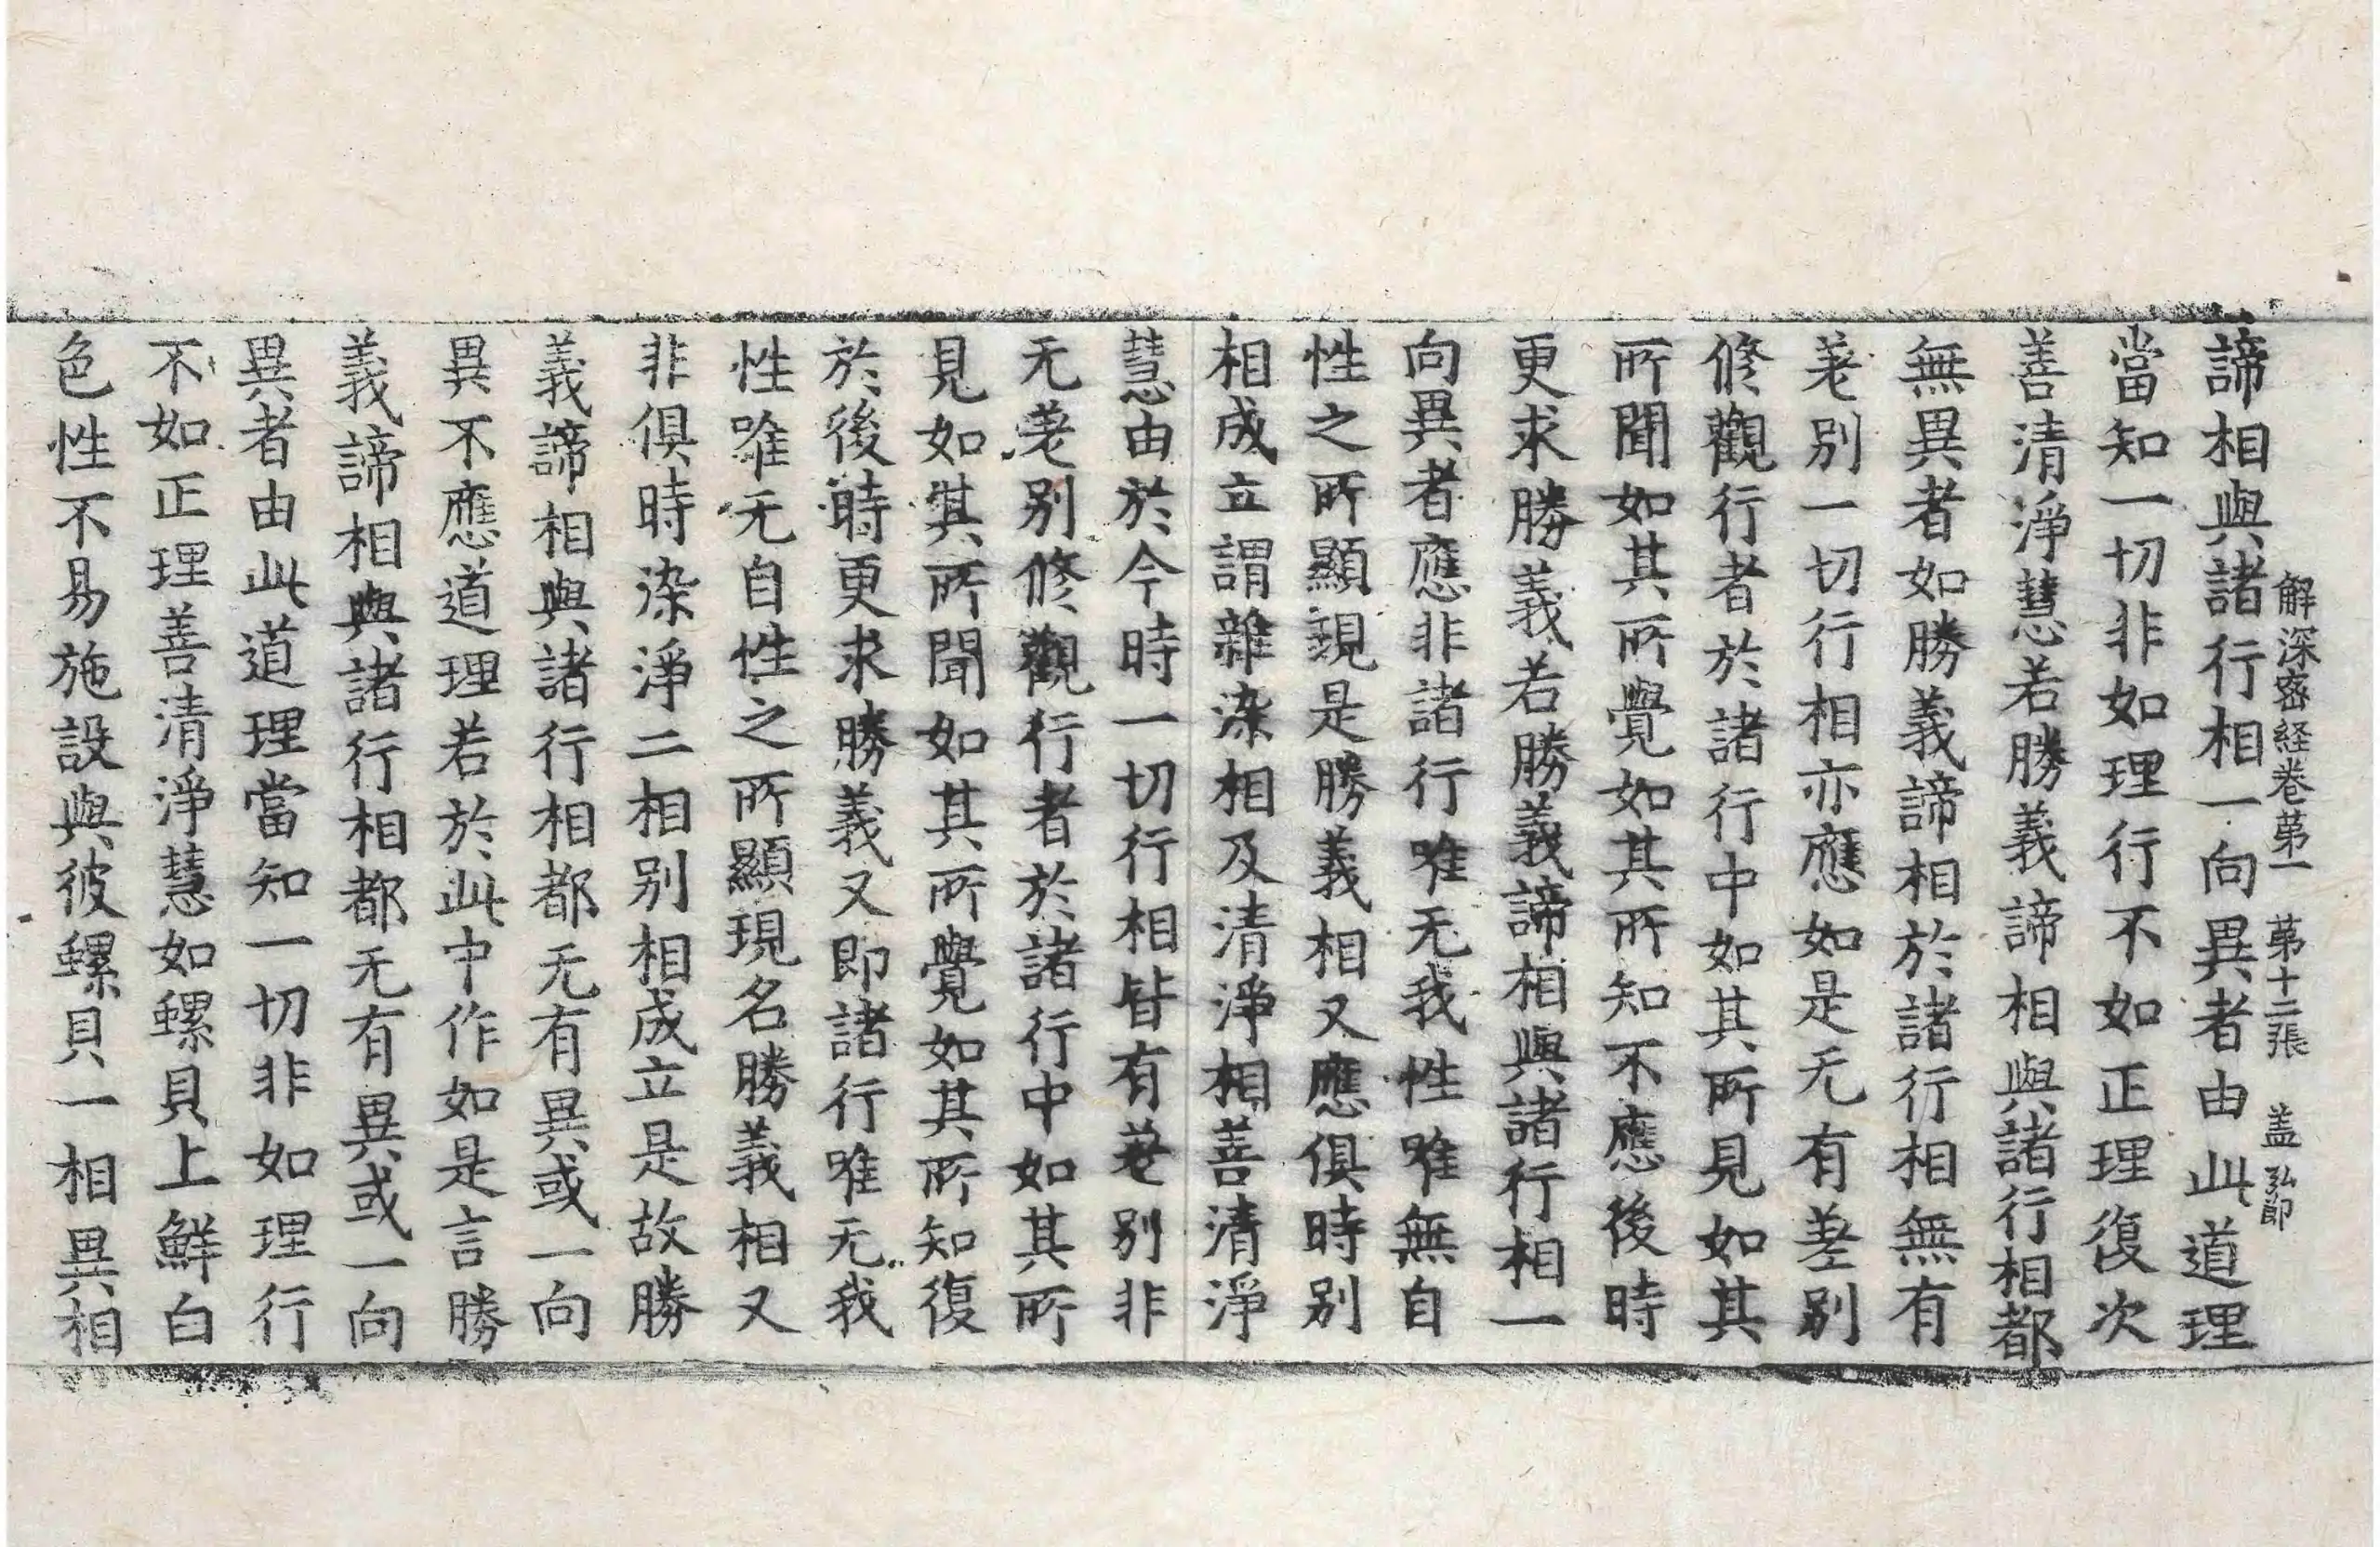 解深密経卷苐一 苐十二張 盖 弘節
諦相與諸行相一向異者由此道理
當知一切非如理行不如正理復次
善清淨慧若勝義諦相與諸行相都
無異者如勝義諦相於諸行相無有
差別一切行相亦應如是无有差別
修觀行者於諸行中如其所見如其
所聞如其所覺如其所知不應後時
更求勝義若勝義諦相與諸行相一
向異者應非諸行唯无我性唯無自
性之所顯現是勝義相又應俱時別
相成立謂雜染相及清淨相善清淨
慧由於今時一切行相皆有差別非
无差别修觀行者於諸行中如其所
見如其所聞如其所覺如其所知復
於後時更求勝義又即諸行唯无我
性唯无自性之所顯現名勝義相又
非俱時染淨二相別相成立是故勝
義諦相與諸行相都无有異或一向
異不應道理若於此中作如是言勝
義諦相與諸行相都无有異或一向
異者由此道理當知一切非如理行
不如正理善清淨慧如螺貝上鮮白
色性不易施設與彼螺貝一相異相